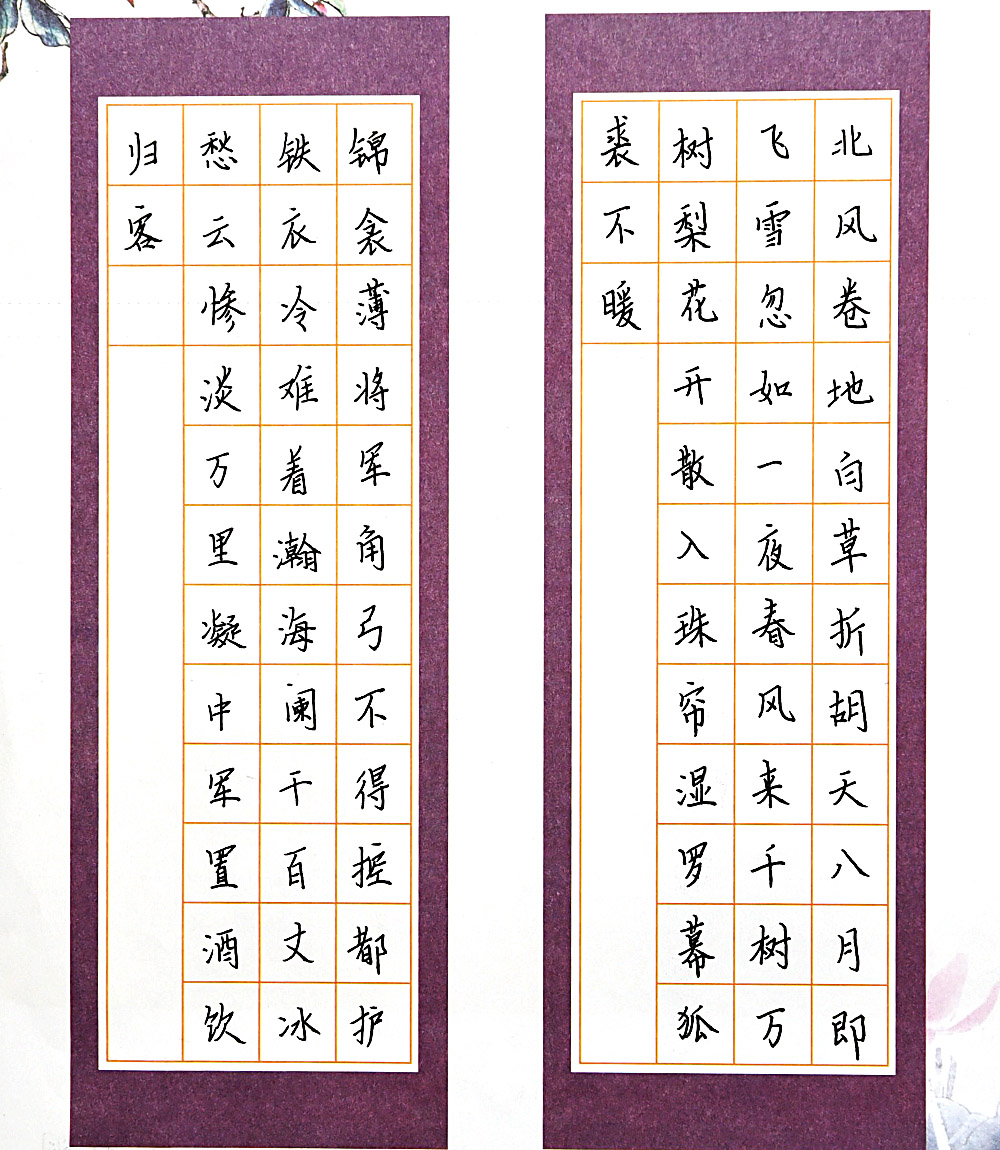 北风卷地白草折胡天八月即
飞雪忽如一夜春风来千树万
树梨花开散入珠帘湿罗幕狐
裘不暖
锦衾薄将军角弓不得控都护
铁衣冷难着瀚海阑干百丈冰
愁云惨淡万里凝中军置酒饮
归客